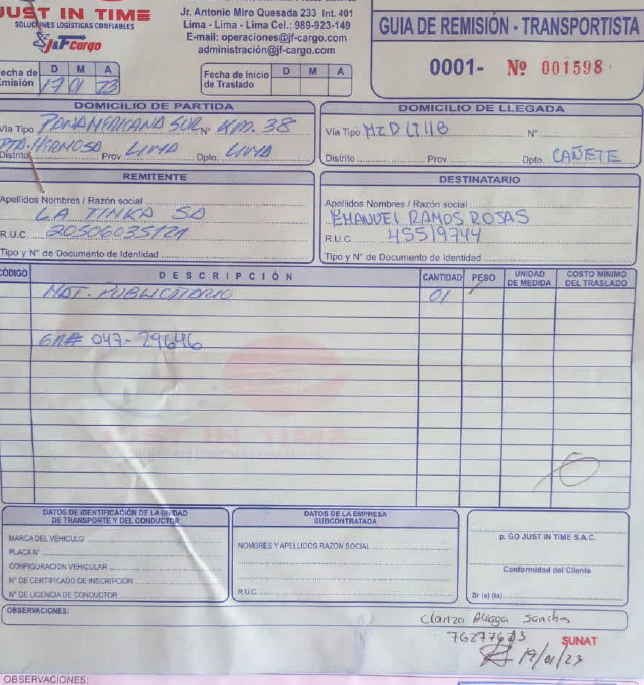 JUST IN TIME
SOLUCIONES LOGÍSTICAS CONFIABLES
J&F Cargo
Jr. Antonio Miro Quesada 233 Int. 401
Lima - Lima - Lima Cel.: 989-923-149
E-mail: operaciones@jf-cargo.com
administración@jf-cargo.com
GUIA DE REMISIÓN - TRANSPORTISTA
0001- Nº 001598
Fecha de Emisión D M A
17 01 23
Fecha de Inicio de Traslado D M A
DOMICILIO DE PARTIDA
Via Tipo PANAMERICANA SUR Nº KM. 38
PTA. HERMOSA LIMA LIMA
Distrito Prov. Dpto.
DOMICILIO DE LLEGADA
Via Tipo MZ D LT 11B Nº
Distrito Prov. Dpto. CAÑETE
REMITENTE
Apellidos Nombres / Razón social
LA TINKA SA
R.U.C. 20506035121
Tipo y Nº de Documento de Identidad
DESTINATARIO
Apellidos Nombres / Razón social
EMANUEL RAMOS ROJAS
R.U.C. 45519744
Tipo y Nº de Documento de Identidad
CÓDIGO DESCRIPCIÓN CANTIDAD PESO UNIDAD DE MEDIDA COSTO MÍNIMO DEL TRASLADO
MAT. PUBLICITARIO 01
GR# 047-29646
JUST IN TIME
DATOS DE IDENTIFICACIÓN DE LA UNIDAD DE TRANSPORTE Y DEL CONDUCTOR
MARCA DEL VEHICULO
PLACA Nº
CONFIGURACIÓN VEHICULAR
Nº DE CERTIFICADO DE INSCRIPCION
Nº DE LICENCIA DE CONDUCTOR
DATOS DE LA EMPRESA SUBCONTRATADA
NOMBRES Y APELLIDOS RAZON SOCIAL
R.U.C.
p. GO JUST IN TIME S.A.C.
Conformidad del Cliente
Sr (a) (ta)
OBSERVACIONES:
Aliaga Sanchez
SUNAT
19/01/23
OBSERVACIONES: